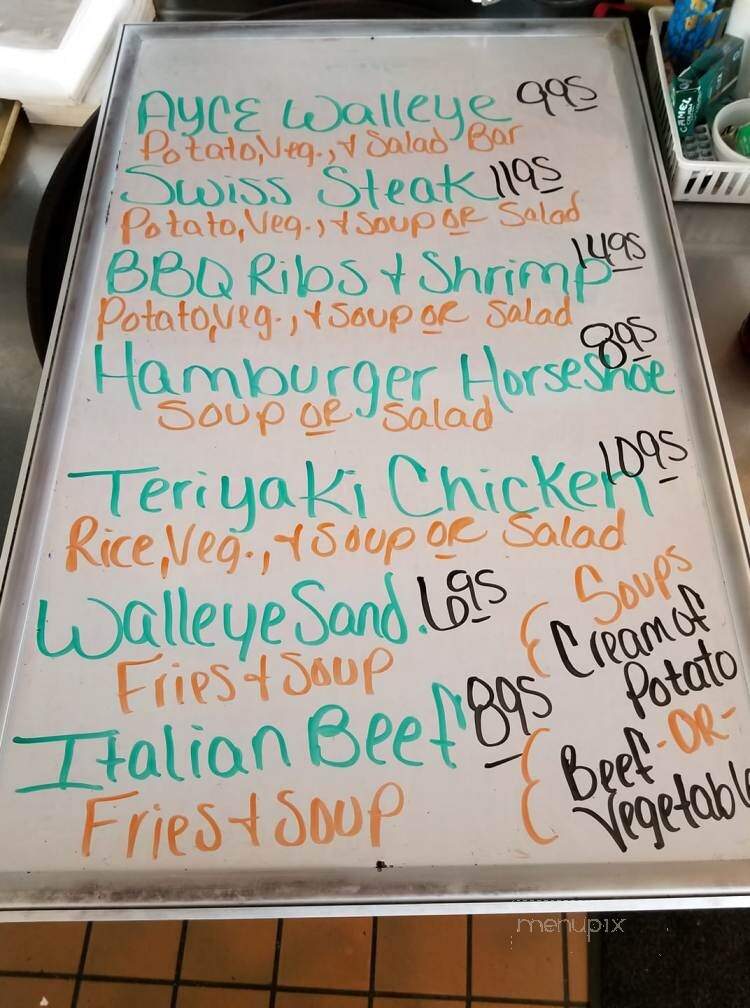 AYCE Walleye 995
Potato, Veg., & Salad Bar
Swiss Steak 1195
Potato, Veg., & Soup OR Salad
BBQ Ribs & Shrimp 1495
Potato, Veg., & Soup OR Salad
Hamburger Horseshoe 895
Soup OR Salad
Teriyaki Chicken 1095
Rice, Veg., & Soup OR Salad
Walleye Sand. 695
Fries & Soup
Italian Beef 895
Fries & Soup
Soups
Cream of
Potato
-OR-
Beef
Vegetable
CAMEL
menupix